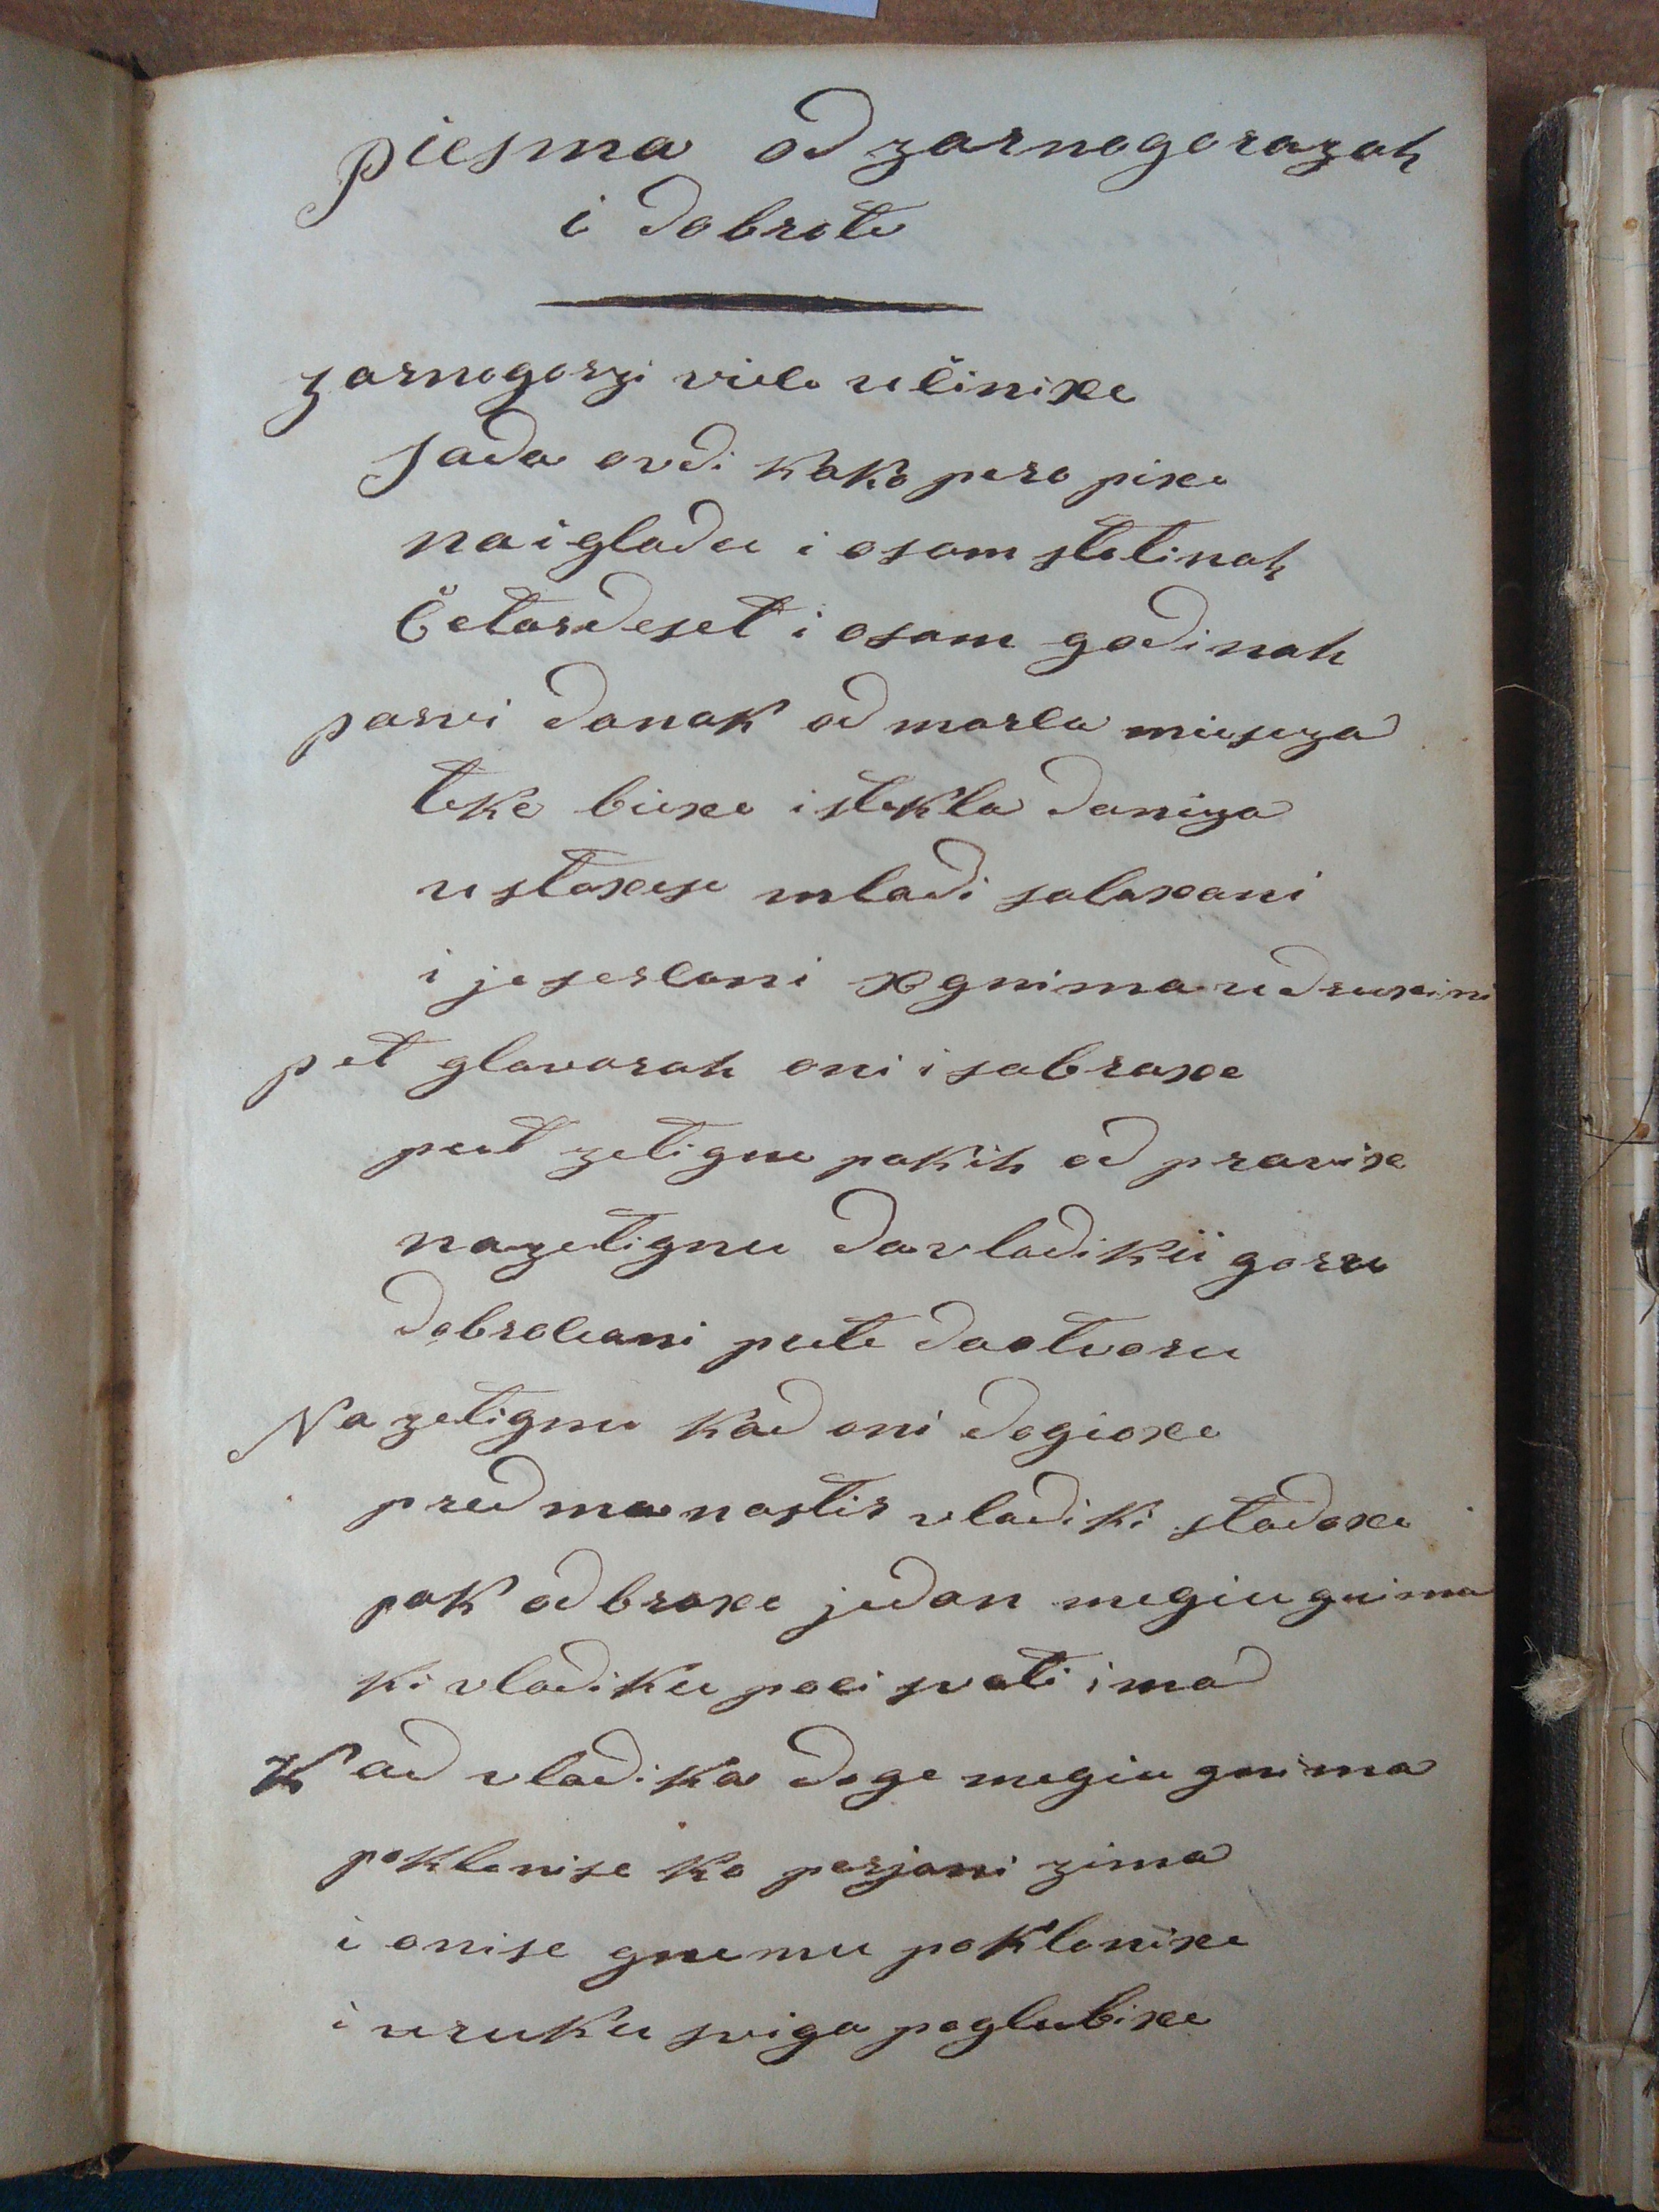 piesma od zarnogorazah
i dobrote
zarnogorzi viele učinixe
sada ovdi kako pero pixe
naigladu i osam stotinah
Četardeset i osam godinah
parvi danak od marča mieseza
teke biexe istekla daniza
ustaxese mladi salaxani
i jeserčani xgnima udruxini
pet glavarah oni isabraxe
put zetigne pakih od pravixe
nazetignu davladikii goru
dobročani pute daotvoru
Na zetignu kad oni dogioxe
pred manastir vladiki stadoxe
pak odbraxe jedan megiu gnima
ki vladiku poči svati ima
Kad vladika doge megiu gnima
poklonise ko perjani zima
i onise gnemu poklonixe
i uruku sviga poglubixe